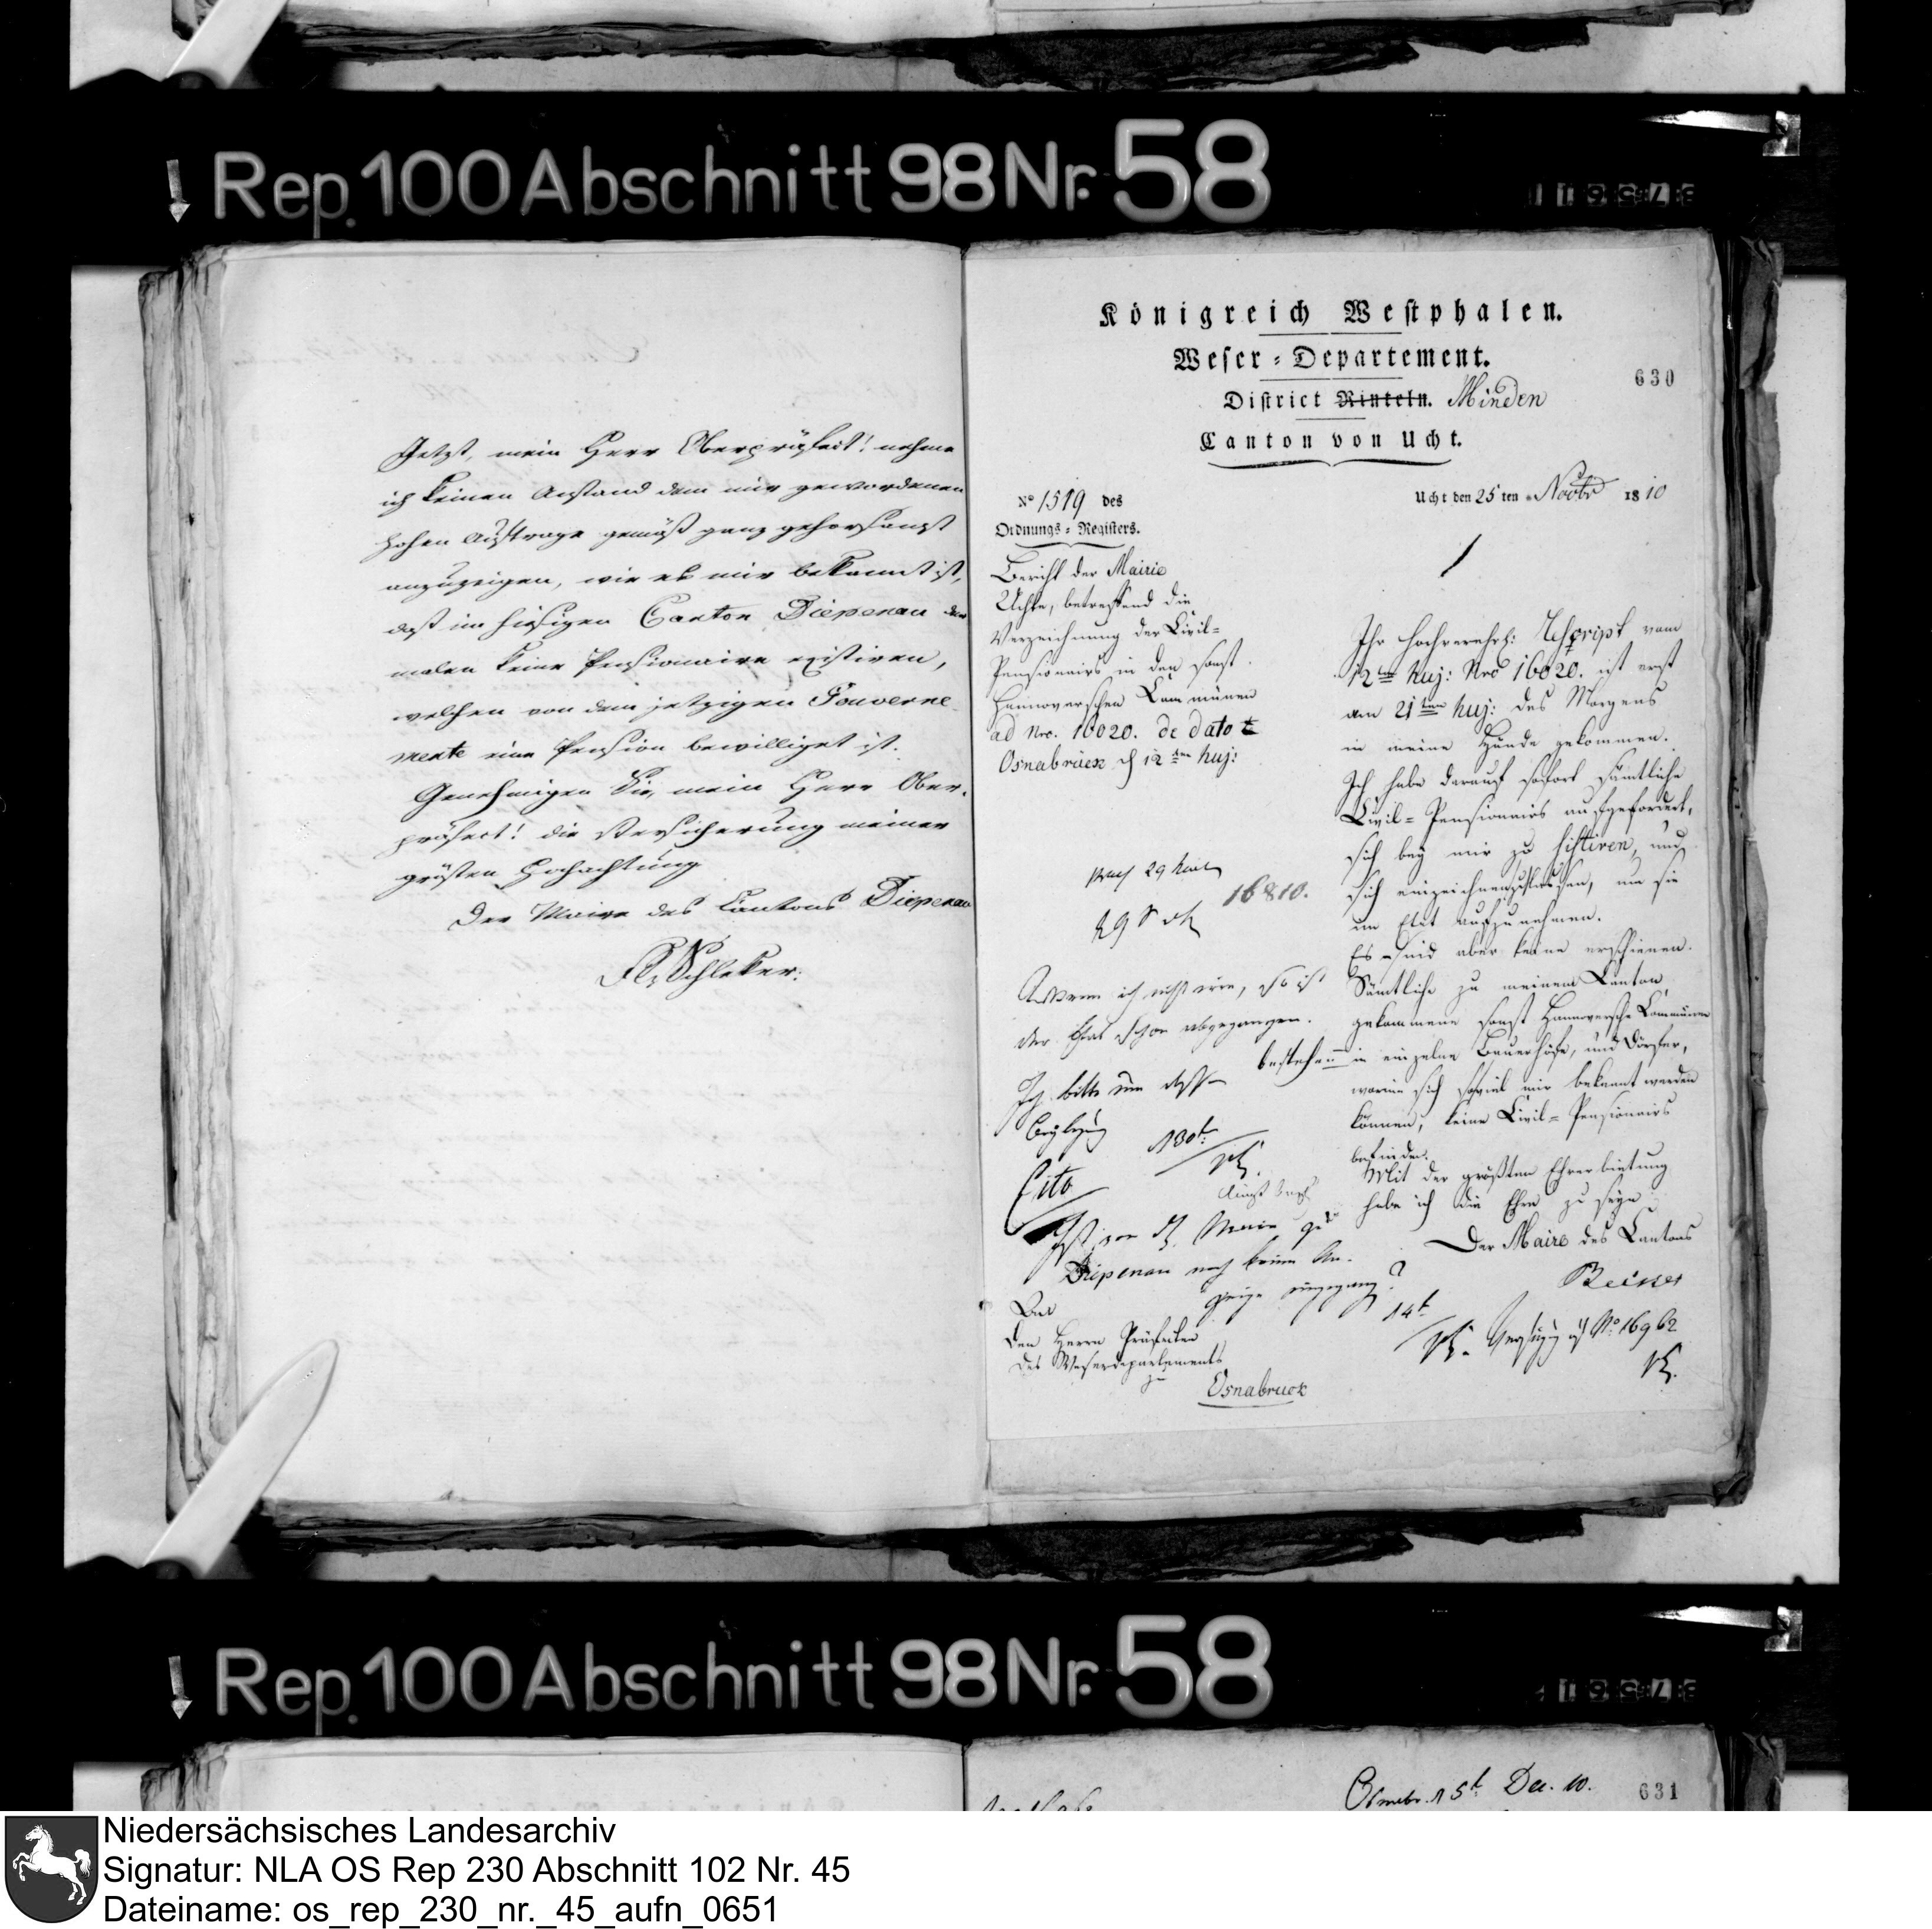 Rep. 100 Abschnitt 98 Nr. 58
Jetzt, mein Herr Oberpräfect! nehme
ich keinen Anstand dem mir gewordenen
hohen Auftrage gemäß ganz gehorsamst
anzuzeigen, wie es mir bekannt ist,
daß im hiesigen Canton Diepenau der
malen keine Pensionaire existiren,
welchen von dem jetzigen Gouverne
mente eine Pension bewilliget ist.
Genehmigen Sie, mein Herr Ober-
präfect! die Versicherung meiner
größten Hochachtung
Der Maire des Cantons Diepenau
Königreich Westphalen.
Weser-Departement.
630
District Rinteln. Minden
Canton von Ucht.
No 1519 des
Ordnungs-Registers.
Ucht den 25ten Novbr 1810
Bericht der Mairie
Uchte, betreffend die
Verzeichnung der Civil-
Pensionairs in den sonst
Hannoverschen Communen
ad Nro. 16020. de dato
Osnabrück d 12ten huj:
16810.
Ihr hochverehrl: Rescript vom
12ten huj: Nro 16020. ist erst
am 21ten huj: des Morgens
in meine Hände gekommen.
Ich habe darauf sofort sämtliche
Civil-Pensionairs aufgefordert,
sich bey mir zu sistiren, und
sich einzeichnen zu lassen, um sie
im Etat aufzunehmen.
Es sind aber keine erschienen.
Sämtliche zu meinem Canton
gekommene sonst Hannoversche Communen
bestehen in einzelne Bauerhöfe, und Dörfer,
worin sich soviel mir bekannt werden
können, keine Civil-Pensionairs
befinden.
Mit der größten Ehrerbietung
habe ich die Ehre zu seyn
Der Maire des Cantons
Wenn ich nicht irre, so ist
der schon abgegangen.
Ich bitte um dessen
Beylegung
Cito
Ist von dem Maire
Diepenau noch keine An-
zeige eingegangen?
An
den Herrn Präfecten
des Weserdepartements
zu
Osnabruck
No 16962
Rep. 100 Abschnitt 98 Nr. 58
Dec. 10.
631
Niedersächsisches Landesarchiv
Signatur: NLA OS Rep 230 Abschnitt 102 Nr. 45
Dateiname: os_rep_230_nr._45_aufn_0651